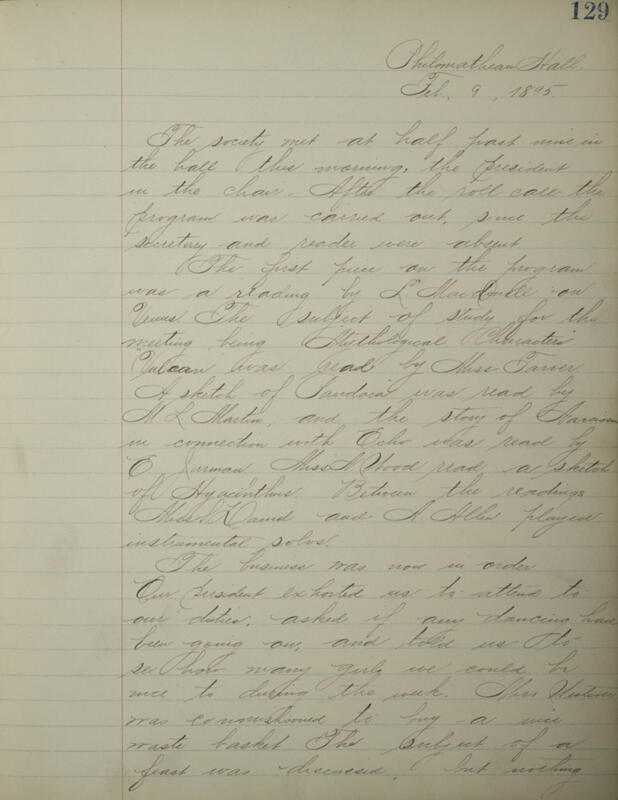 129
Philomathean Hall.
Feb. 9, 1895.
The society met at half past nine in
the hall this morning, the president
in the chair. After the roll call the
program was carried out, since the
secretary and reader were absent.
The first piece on the program
was a reading by L. MacDuell on
Venus. The subject of study for the
meeting being Mythological Characters
Vulcan was read by Miss Tarver.
A sketch of Pandora was read by
M. L. Martin, and the story of Narcissus
in connection with Echo was read by
E. Jarman. Miss Wood read a sketch
of Hyacinthus. Between the readings
Miss David and A. Allen played
instrumental solos.
The business was now in order.
Our president exhorted us to attend to
our duties, asked if any dancing had
been going on, and told us to
see how many girls we could be
nice to during the week. Miss
was commissioned to buy a nice
waste basket. The subject of a
feast was discussed, but nothing